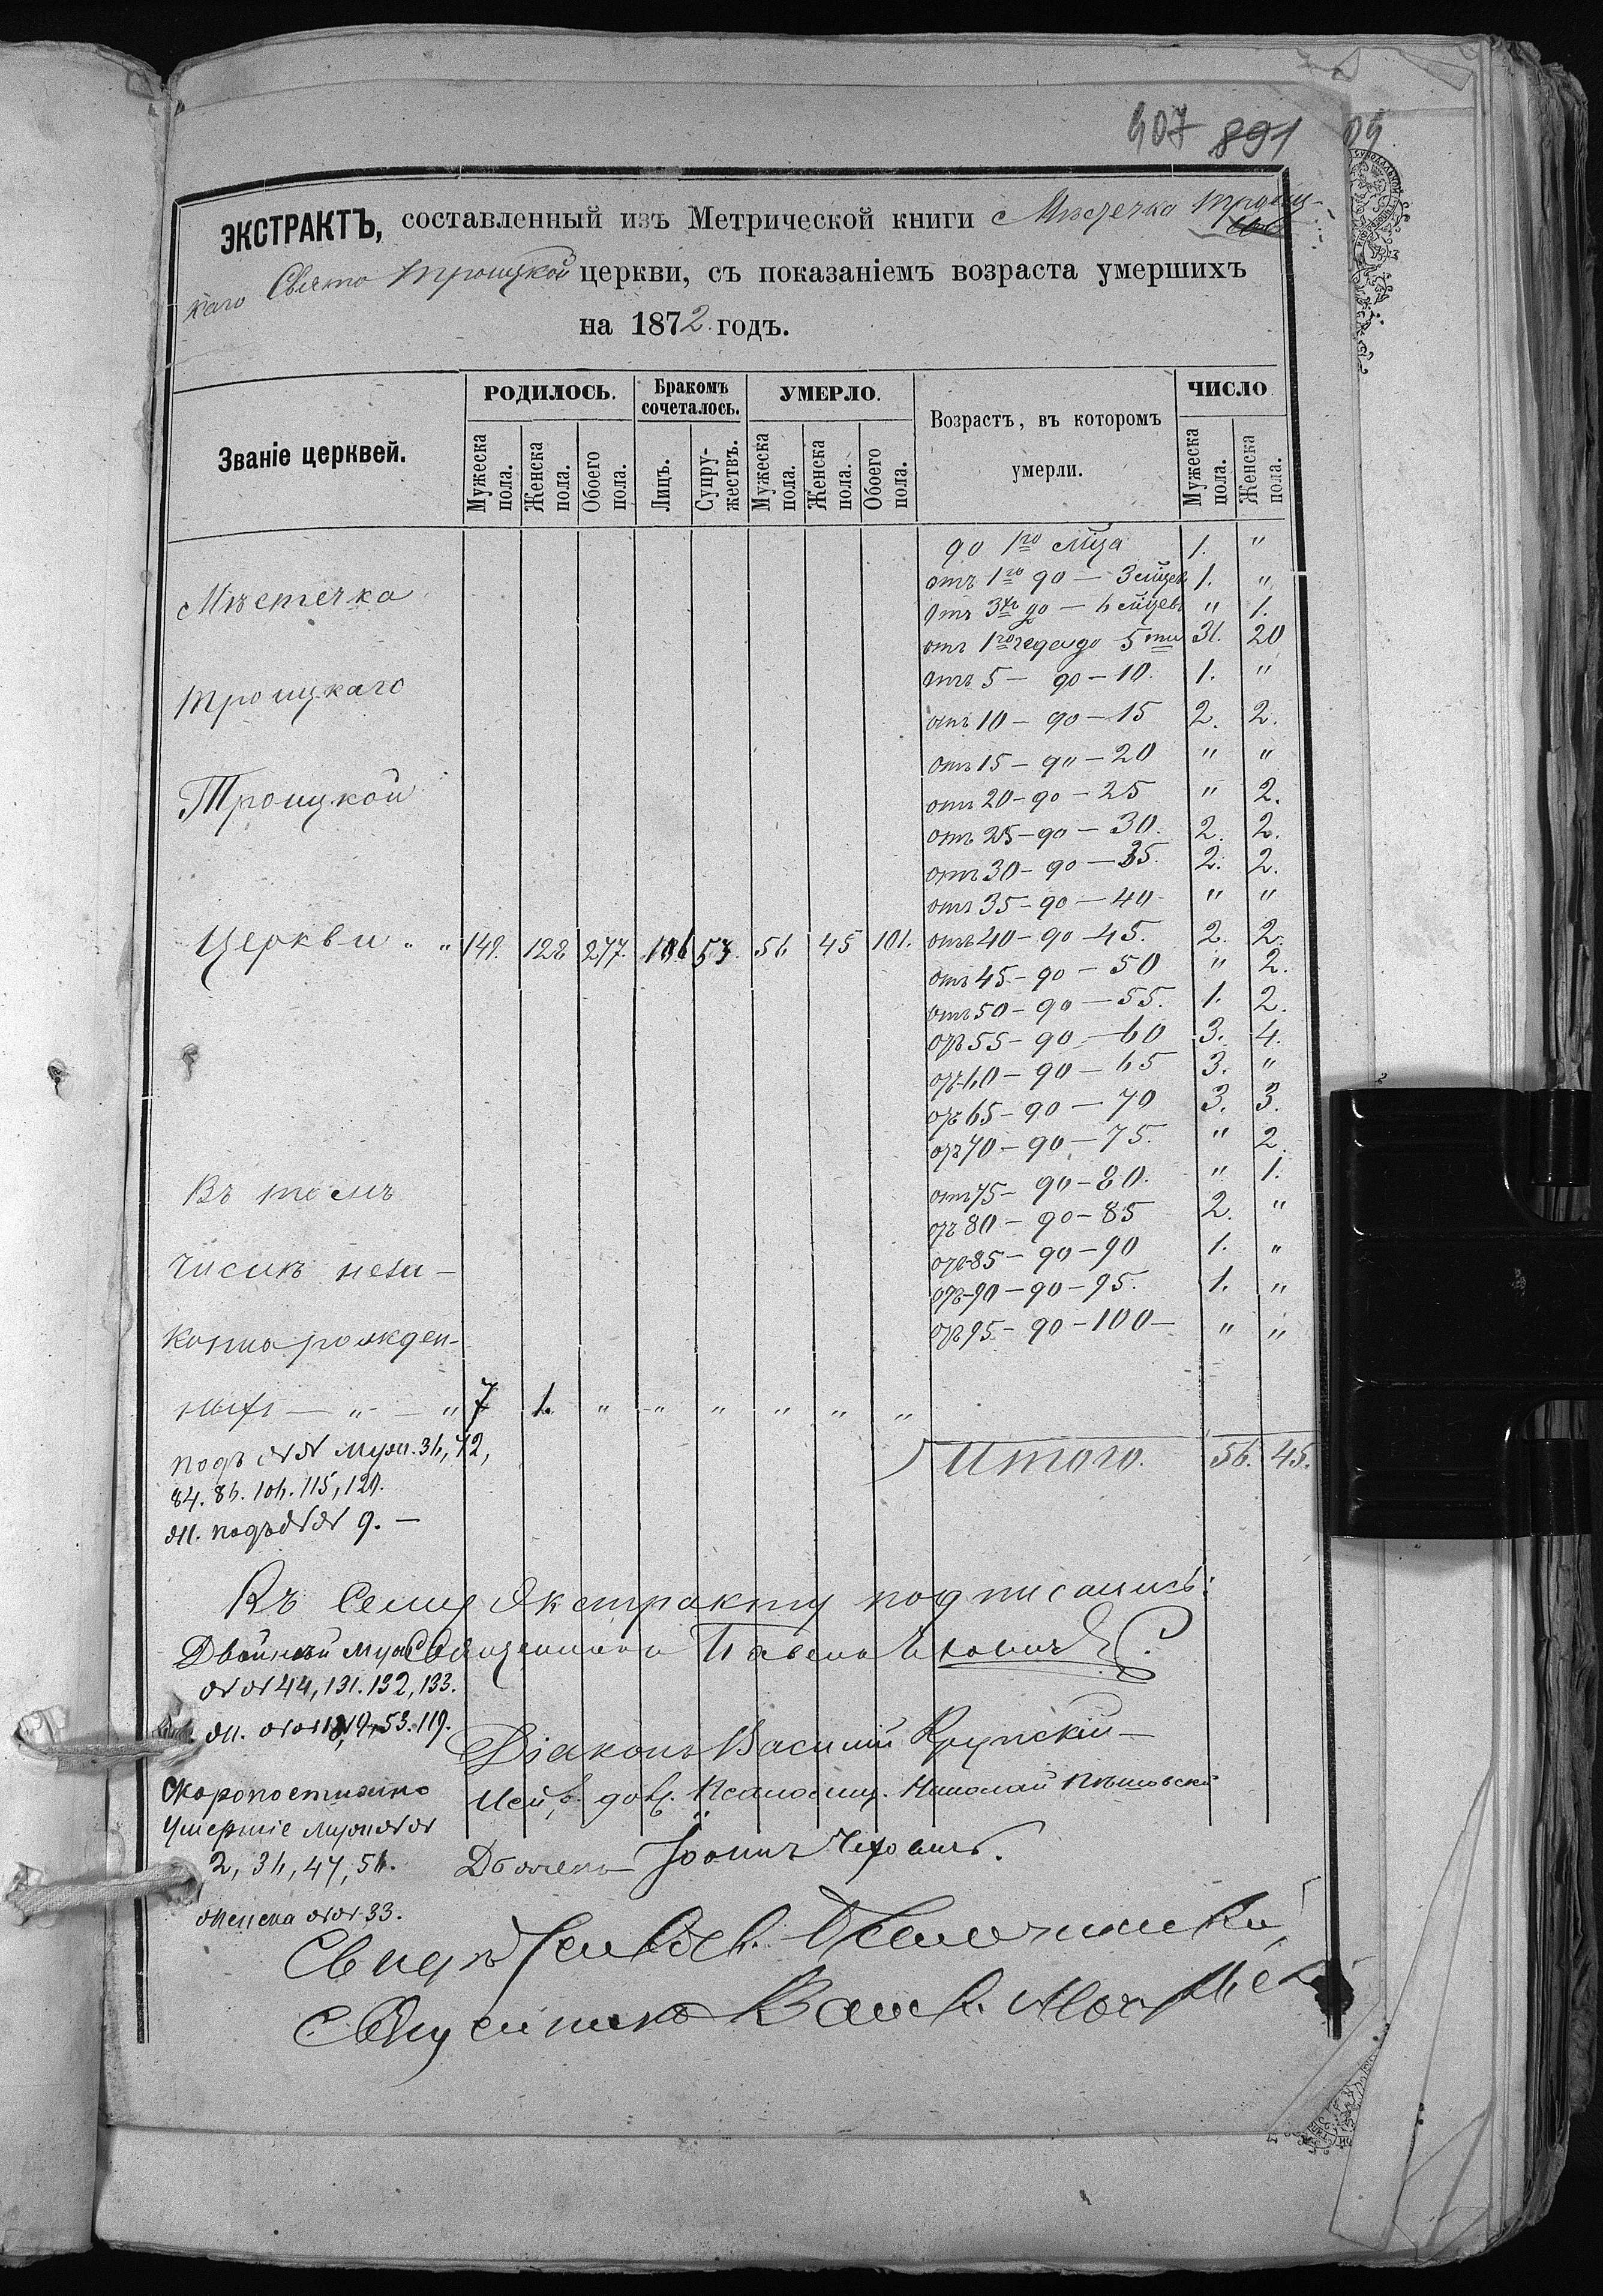 407 891
ЭКСТРАКТЪ, составленный изъ Метрической книги Мѣстечка Троиц-
каго Свято Троицкой церкви, съ показаніемъ возраста умершихъ
на 1872 годъ.
Званіе церквей.
РОДИЛОСЬ.
Бракомъ сочеталось.
УМЕРЛО.
Возрастъ, въ которомъ умерли.
ЧИСЛО
Мужеска пола.
Женска пола.
Обоего пола.
Лицъ.
Супру-жествъ.
Мужеска пола.
Женска пола.
Обоего пола.
Мужеска пола.
Женска пола.
до 1го мѣца 1. "
отъ 1го до — 3 мѣцевъ 1. "
отъ 3хъ до — 6 мѣцевъ " 1.
отъ 1го года до 5ти 31. 20
отъ 5 — до — 10. 1. "
отъ 10 — до — 15 2. 2.
отъ 15 — до — 20 " "
отъ 20 — до — 25 " 2.
отъ 25 — до — 30. 2. 2.
отъ 30 — до — 35. 2. 2.
отъ 35 — до — 40 " "
Мѣстечка
Троицкаго
Троицкой
Церкви " " 149. 128 277. 106 53. 56 45 101. отъ 40 — до — 45. 2. 2.
отъ 45 — до — 50 " 2.
отъ 50 — до — 55. 1. 2.
отъ 55 — до — 60 3. 4.
отъ 60 — до — 65 3. "
отъ 65 — до — 70 3. 3.
отъ 70 — до — 75. " 2
отъ 75 — до — 80. " 1.
отъ 80 — до — 85 2. "
отъ 85 — до — 90 1. "
отъ 90 — до — 95. 1. "
отъ 95 — до — 100 — " "
Въ томъ
Числѣ неза-
конно рожден-
ныхъ — " — " 7 1. " " " " " "
Итого. 56. 45.
подъ №№ Муж. 36, 42,
84. 86. 106. 115, 120.
Ж. подъ №№ 9. —
Къ сему Экстракту подписались:
Двойней Муж. Священникъ Павелъ
№№ 44, 131. 132, 133.
Ж. №№ 18, 19, 53. 119.
Діаконъ Василий Крупскій —
Скоропостижно
Умершіе Муж №№
2, 36, 47, 56.
Женска №№ 33.
Николай
Дьячекъ Іоаннъ